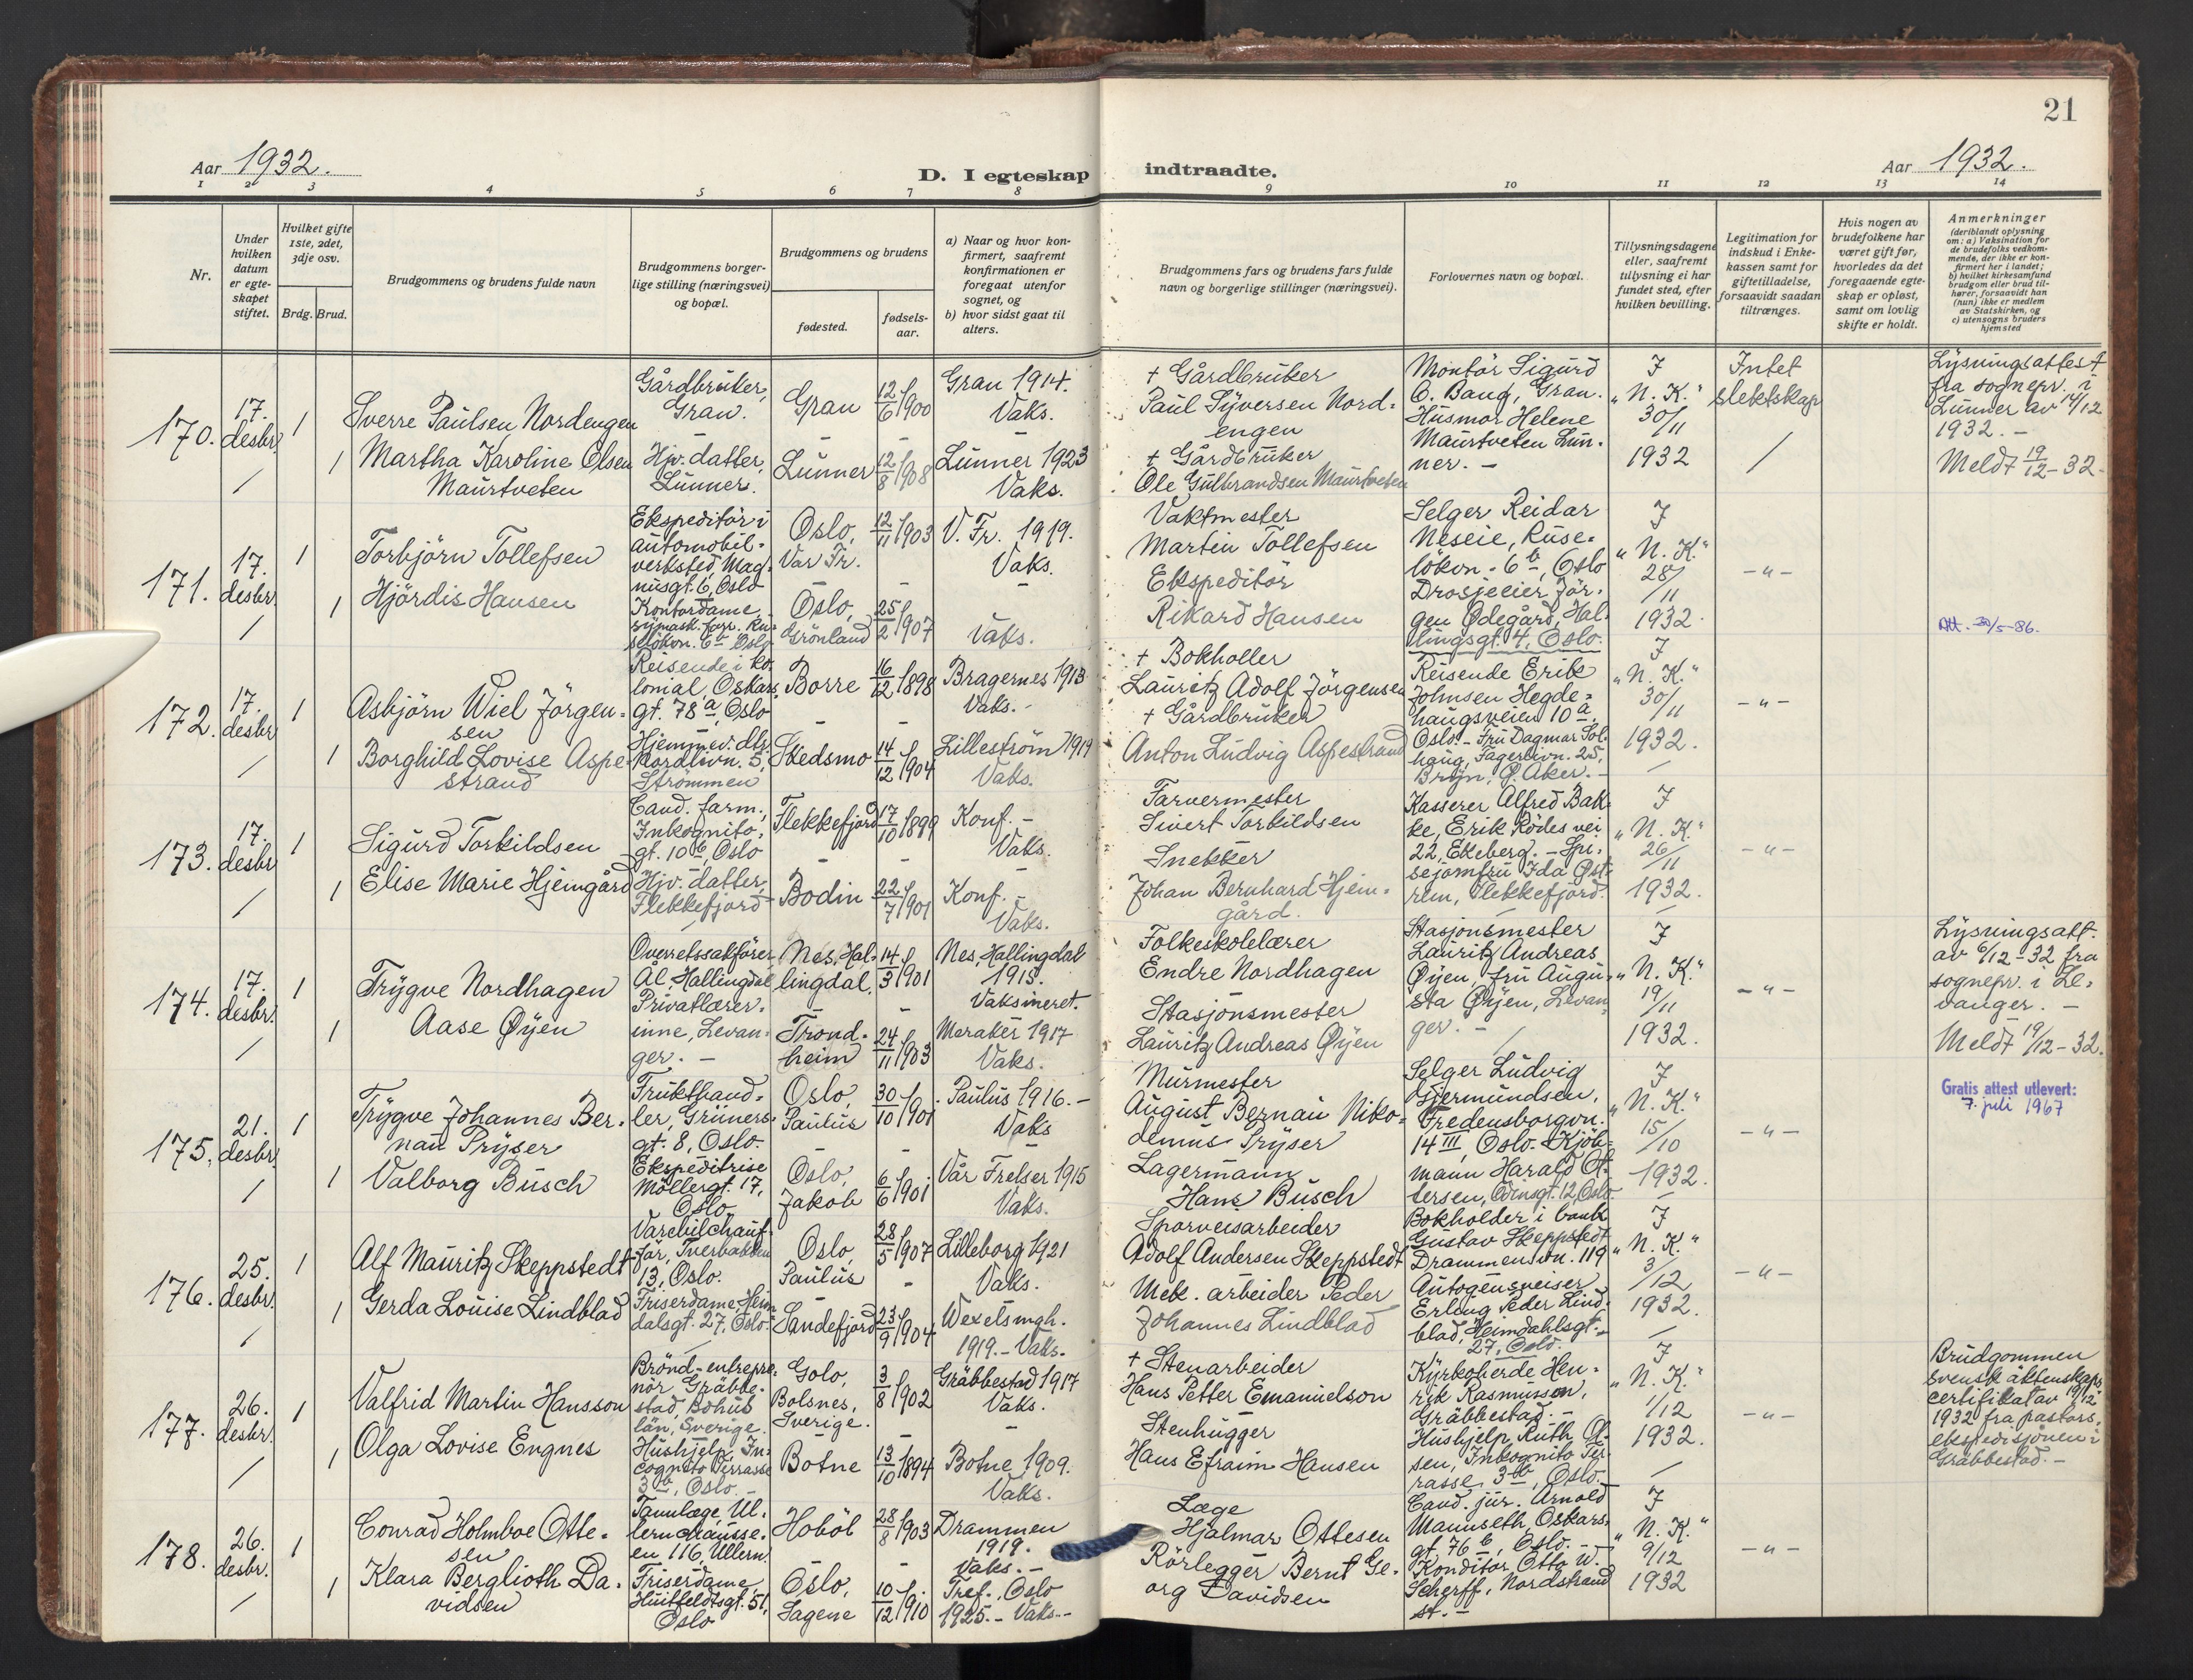 21
Aar 1932.
D. I egteskap indtraadte.
Aar 1932.
1 2 3 4 5 6 7 8 9 10 11 12 13 14
Nr.
Under hvilken datum er egteskapet stiftet.
Hvilket gifte 1ste, 2det, 3dje osv.
Brdg. Brud.
Brudgommens og brudens fulde navn
Brudgommens borgerlige stilling (næringsvei) og bopæl.
Brudgommens og brudens
fødested.
fødselsaar.
a) Naar og hvor konfirmert, saafremt konfirmationen er foregaat utenfor sognet, og
b) hvor sidst gaat til alters.
Brudgommens fars og brudens fars fulde navn og borgerlige stillinger (næringsvei).
Forlovernes navn og bopæl.
Tillysningsdagene eller, saafremt tillysning ei har fundet sted, efter hvilken bevilling.
Legitimation for indskud i Enkekassen samt for giftetilladelse, forsaavidt saadan tiltrænges.
Hvis nogen av brudefolkene har været gift før, hvorledes da det foregaaende egteskap er opløst, samt om lovlig skifte er holdt.
Anmerkninger (deriblandt oplysning om: a) Vaksination for de brudefolks vedkommende, der ikke er konfirmert her i landet; b) hvilket kirkesamfund brudgom eller brud tilhører, forsaavidt han (hun) ikke er medlem av Statskirken, og c) utensogns bruders hjemsted
170. 17. desbr. 1
Sverre Paulsen Nordengen
Gårdbruker, Gran.
Gran 12/6 1900
Gran 1914. Vaks.
+ Gårdbruker Paul Syversen Nordengen
Montør Sigurd O. Baug, Gran. Husmor Helene Maurtveten Lunner. -
I "N. K." 30/11 1932
Intet slektskap
Lysningsattest fra sognepr. i Lunner av 14/12 1932. -
Meldt 19/12-32.
1 Martha Karoline Olsen Maurtveten
Hjv. datter, Lunner.
Lunner 12/8 1908
Lunner 1923 Vaks.
+ Gårdbruker Ole Gulbrandsen Maurtveten
171. 17. desbr. 1
Torbjörn Tollefsen
Ekspeditör i automobilverksted, Magnusgt. 6, Oslo
Oslo, Vår Fr. 12/11 1903
V. Fr. 1919. Vaks.
Vaktmester Martin Tollefsen
Selger Reidar Neseie, Ruselökvn. 6 b, Oslo
Drosjeeier Jörgen Ødegård, Hallingsgt. 4, Oslo.
I "N. K." 28/11 1932.
- " -
Att. 30/5-86.
1 Hjördis Hansen
Kontordame
Oslo, Grönland 25/2 1907
Vaks.
Ekspeditör Rikard Hansen
172. 17. desbr. 1
Asbjörn Wiel Jörgensen
Reisende i kolonial, Oskarsgt. 78 a, Oslo
Borre 16/12 1898
Bragernes 1913 Vaks. -
+ Bokholler Lauritz Adolf Jörgensen
Reisende Erik Johnsen Hegdehaugsveien 10 a, Oslo. - Fru Dagmar Solhaug, Fagerlivn. 25, Bryn, Ø. Aker. -
I "N. K." 30/11 1932.
- " -
1 Borghild Lovise Aspestrand
Hjemmev. dtr. Nordlivn. 5, Strömmen
Skedsmo 14/12 1904
Lilleström 1919 Vaks.
+ Gårdbruker Anton Ludvig Aspestrand
173. 17. desbr. 1
Sigurd Torkildsen
Cand. farm., Inkognitogt. 10 b, Oslo
Flekkefjord 17/10 1899
Konf. - Vaks.
Farvermester Sivert Torkildsen
Kasserer Alfred Bakke, Erik Rødes vei 22, Ekeberg. - Spisejomfru Ida Östrem, Flekkefjord.
I "N. K." 26/11 1932.
- " -
1 Elise Marie Hjemgård
Hjv. datter, Flekkefjord
Bodin 22/7 1901
Konf. - Vaks.
Snekker Johan Bernhard Hjemgård.
174. 17. desbr. 1
Trygve Nordhagen
Overretssakförer Ål, Hallingdal
Nes, Hallingdal. 14/3 1901
Nes, Hallingdal 1915. Vaksineret.
Folkeskolelærer Endre Nordhagen
Stasjonsmester Lauritz Andreas Øyen, fru Augusta Øyen, Levanger. -
I "N. K." 19/11 1932.
- " -
Lysningsatt. av 6/12-32 fra sognepr. i Levanger. -
Meldt 19/12-32.
1 Aase Øyen
Privatlærerinne, Levanger. -
Trondheim 24/11 1903
Meraker 1917 Vaks.
Stasjonsmester Lauritz Andreas Øyen
175. 21. desbr. 1
Trygve Johannes Bernau Pryser
Frukthandler, Grünersgt. 8, Oslo.
Oslo, Paulus 30/10 1901
Paulus 1916. - Vaks
Murmester August Bernau Nikodemus Pryser
Selger Ludvig Gjermundsen, Fredensborgvn. 14 III, Oslo. - Kjöbmann Harald Ottersen, Odinsgt. 12, Oslo.
I "N. K." 15/10 1932.
- " -
Gratis attest utlevert:
7. juli 1967
1 Valborg Busch
Ekspeditrise Möllergt. 17, Oslo
Oslo, Jakob 6/6 1901
Vår Frelser 1915 Vaks.
Lagermann Hans Busch
176. 25. desbr. 1
Alf Mauritz Skeppstedt
Varebilchauför, Tverbakken 13, Oslo.
Oslo Paulus 28/5 1907
Lilleborg 1921 Vaks.
Sporveisarbeider Adolf Andersen Skeppstedt
Bokholder i bank Gustav Skeppstedt Drammensvn. 119
Autogensveiser Erling Peder Lindblad, Heimdahlsgt. 27, Oslo.
I "N. K." 3/12 1932.
- " -
1 Gerda Louise Lindblad
Friserdame, Heimdalsgt. 27, Oslo.
Sandefjord 23/9 1904
Wexelsmgh. 1919. - Vaks.
Mek. arbeider Peder Johannes Lindblad
177. 26. desbr. 1
Valfrid Martin Hansson
Brönd-entreprenör Gräbbestad, Bohuslän, Sverige.
Golo, Bolsnes, Sverige. 3/8 1902
Gräbbestad 1917 Vaks.
+ Stenarbeider Hans Petter Emanuelson
Kyrkoherde Henrik Rasmusson, Gräbbestad. - Hushjelp Ruth Olsen, Inkognito Terrasse 3 b, Oslo.
I "N. K." 1/12 1932.
- " -
Brudgommen svensk äktenskapscertifikat av 19/12 1932 fra pastorsekspedisjonen i Gräbbestad. -
1 Olga Lovise Engnes
Hushjelp, Incognito Terrasse 3 b, Oslo. -
Botne 13/10 1894
Botne 1909. Vaks.
Stenhugger Hans Efraim Hansen
178. 26. desbr. 1
Conrad Holmboe Ottesen
Tannlæge, Ullernchausseen 116, Ullern.
Hobøl 28/8 1903
Drammen 1919. Vaks. -
Læge Hjalmar Ottesen
Cand. jur. Arnold Mamseth, Oskarsgt. 76 b, Oslo. - Konditor Otto W. Scherff, Nordstrand st. -
I "N. K." 9/12 1932
- " -
1 Klara Berglioth Davidsen
Friserdame Huitfeldtsgt. 51, Oslo
Oslo, Sagene 10/12 1910
Tref., Oslo 1925. - Vaks. -
Rörlegger Bernt Georg Davidsen